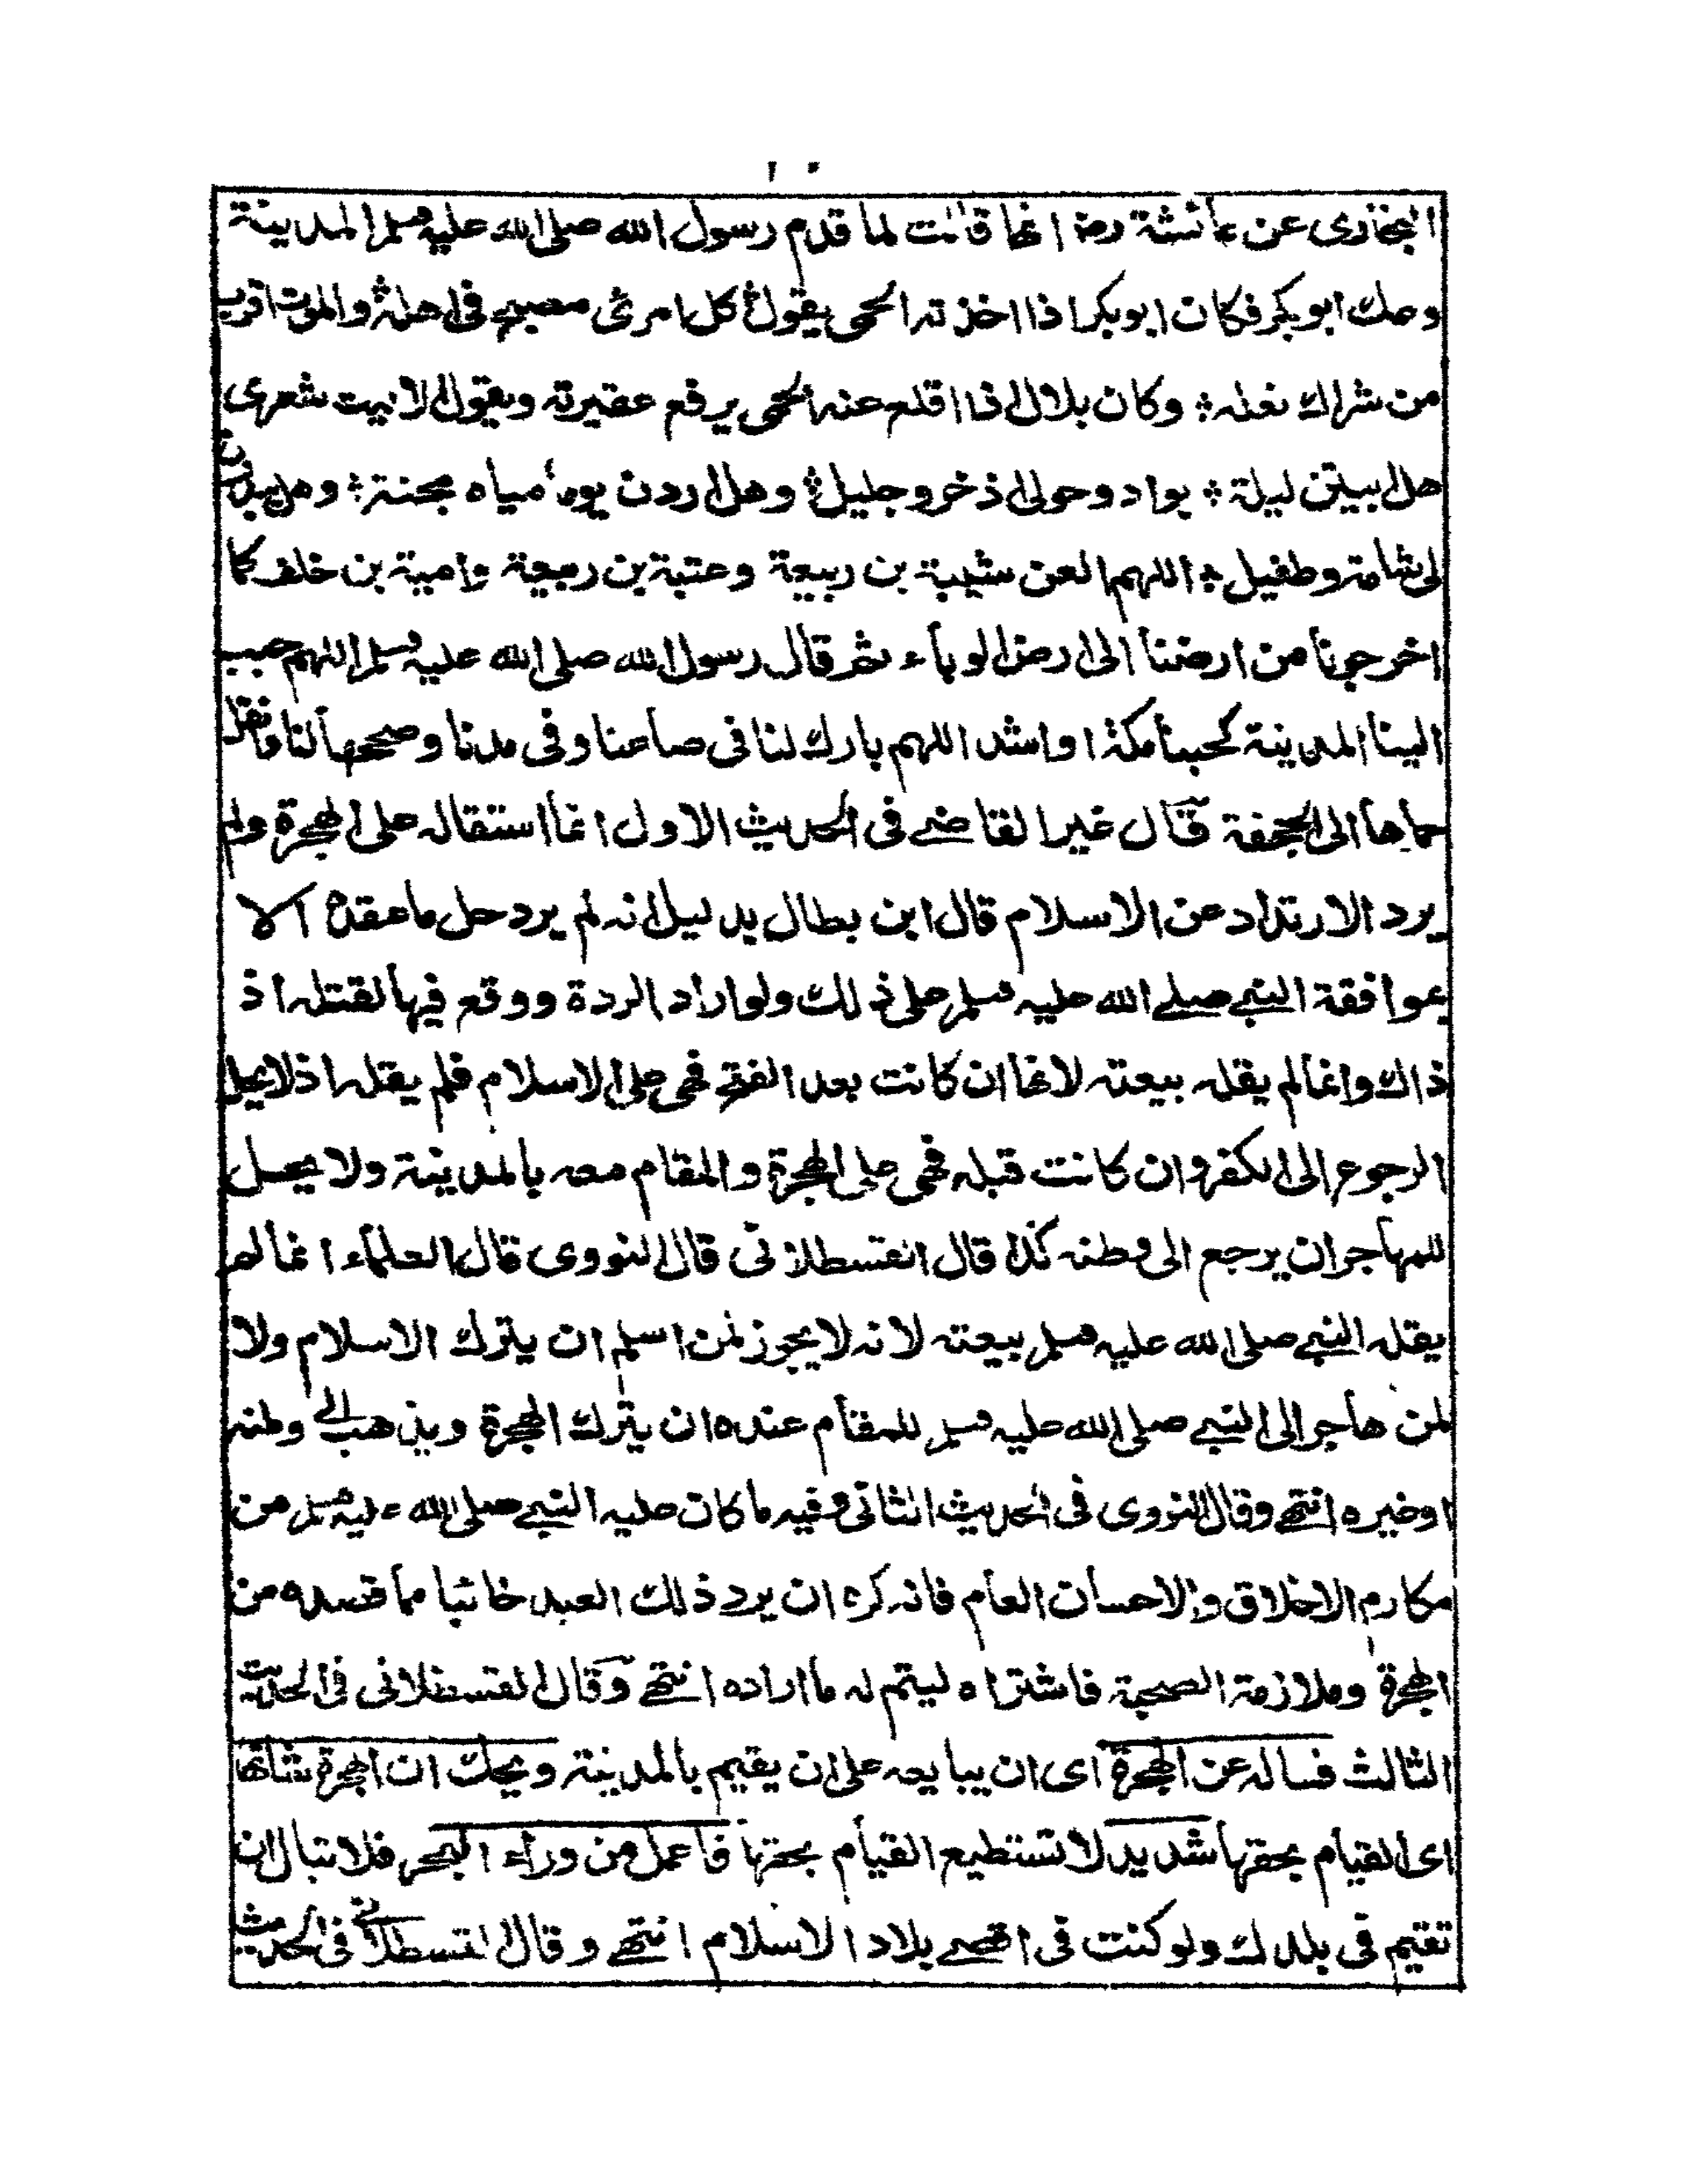 ١٠
البخاری عن عائشة رضہ انھا قالت لما قدم رسول الله صلی الله علیہ وسلم المدینة
وعك ابو بکر فکان ابو بکر اذا اخذتہ الحمی یقول ؞ کل امرئی مصبح فی اهلہ ؞ والموت اقرب
من شراك نعلہ ؞ وکان بلال اذا اقلع عنہ الحمی یرفع عقیرتہ ویقول الا لیت شعری
هل ابیتن لیلة ؞ بواد وحولی اذخر وجلیل ؞ وهل اردن یوما میاه مجنة ؞ وهل یبدون
لی شامة وطفیل ؞ اللهم العن شیبة بن ربیعة وعتبة بن ربیعة وامیة بن خلف کما
اخرجونا من ارضنا الی ارض الوباء ثم قال رسول الله صلی الله علیہ وسلم اللهم حبب
الینا المدینة کحبنا مکة او اشد اللهم بارك لنا فی صاعنا وفی مدنا وصححها لنا وانقل
حماها الی الجحفة قال غیر القاضے فی الحدیث الاول انما استقالہ علی الهجرة ولم
یرد الارتداد عن الاسلام قال ابن بطال بدلیل انہ لم یرد حل ما عقدہ الا
بموافقة النبے صلے الله علیہ وسلم علی ذلك ولو اراد الردة ووقع فیها لقتلہ اذ
ذاك وانما لم یقلہ بیعتہ لانھا ان کانت بعد الفتح فھی علی الاسلام فلم یقلہ اذ لا یحل
الرجوع الی الکفر وان کانت قبلہ فھی علی الهجرة والمقام معہ بالمدینة ولا یحل
للمهاجر ان یرجع الی وطنہ کذا قال القسطلانی قال النووی قال العلماء انما لم
یقلہ النبے صلی الله علیہ وسلم بیعتہ لانہ لا یجوز لمن اسلم ان یترك الاسلام ولا
لمن هاجر الی النبے صلی الله علیہ وسلم للمقام عنده ان یترك الهجرة ویذهب الے وطنہ
او غیره انتھے وقال النووی فی الحدیث الثانی وفیہ ما کان علیہ النبے صلی الله علیہ وسلم من
مکارم الاخلاق والاحسان العام فانہ کره ان یرد ذلك العبد خائبا مما قصده من
الهجرة وملازمة الصحبة فاشتراه لیتم لہ ما اراده انتھے وقال القسطلانی فی الحدیث
الثالث فسالہ عن الهجرة ای ان یبایعہ علی ان یقیم بالمدینة ویحك ان الهجرة شانھا
ای القیام بحقها شدید لا تستطیع القیام بحقها فاعمل من وراء البحر فلا تبال ان
تقیم فی بلدك ولو کنت فی اقصے بلاد الاسلام انتھے وقال القسطلانی فی الحدیث